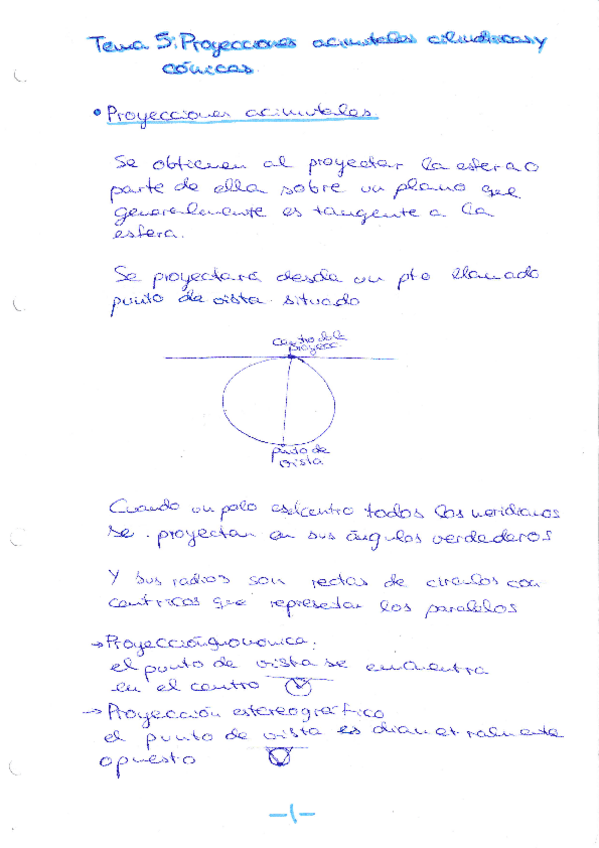 Tema 5: Proyecciones acimutales cilindricas y
cónicas.
• Proyecciones acimutales.
Se obtienen al proyectar la esfera o
parte de ella sobre un plano que
generalmente es tangente a la
esfera.
Se proyectará desde un pto llamado
punto de vista situado
centro de la
proyecc.
punto de
vista
Cuando un polo es el centro todos los meridianos
se proyectan en sus ángulos verdaderos
Y sus radios son rectas de circulos con
centricos que representan los paralelos
→ Proyección gnomónica:
el punto de vista se encuentra
en el centro
→ Proyección estereográfico
el punto de vista es diametralmente
opuesto
-1-